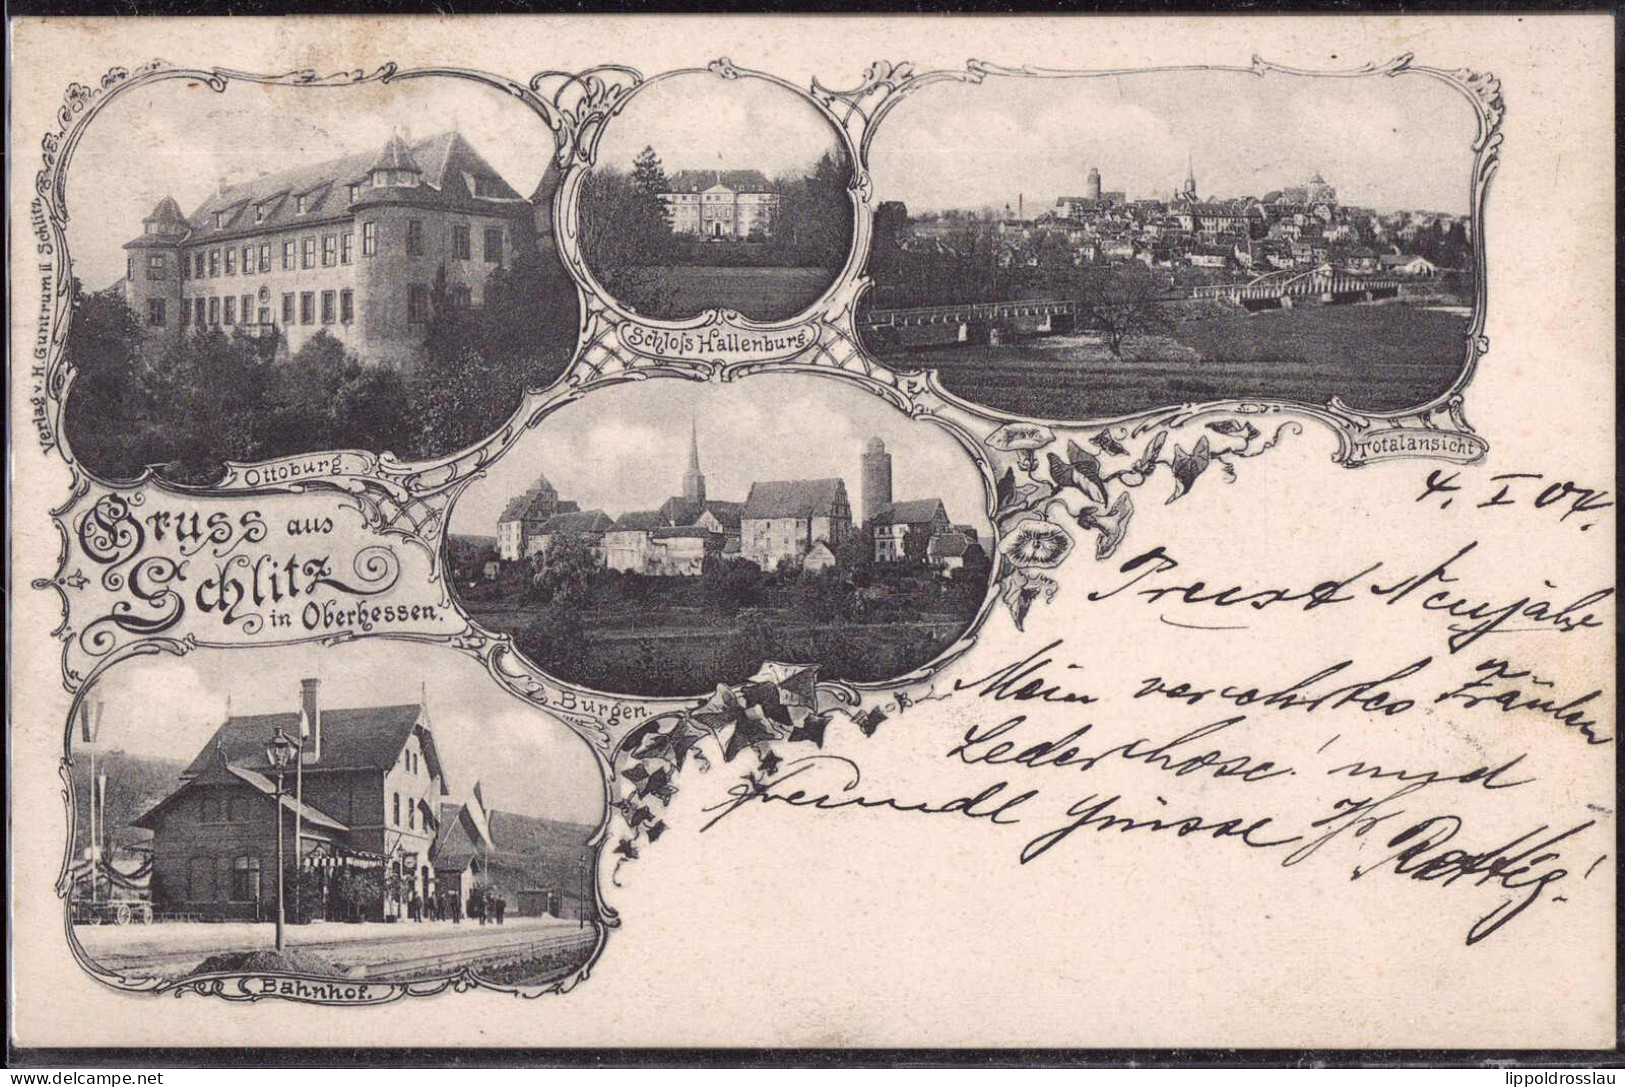 Verlag v. H. Guntrum II Schlitz.
Ottoburg.
Schloſs Hallenburg.
Totalansicht
Gruss aus
Schlitz
in Oberhessen.
Burgen.
Bahnhof.
4. I 04.
Prosit Neujahr
Mein verehrtes Fräulen
Lederhose! und
freundl Grüsse Ihr
Rottig!
delcampe.net
lippoldroslau